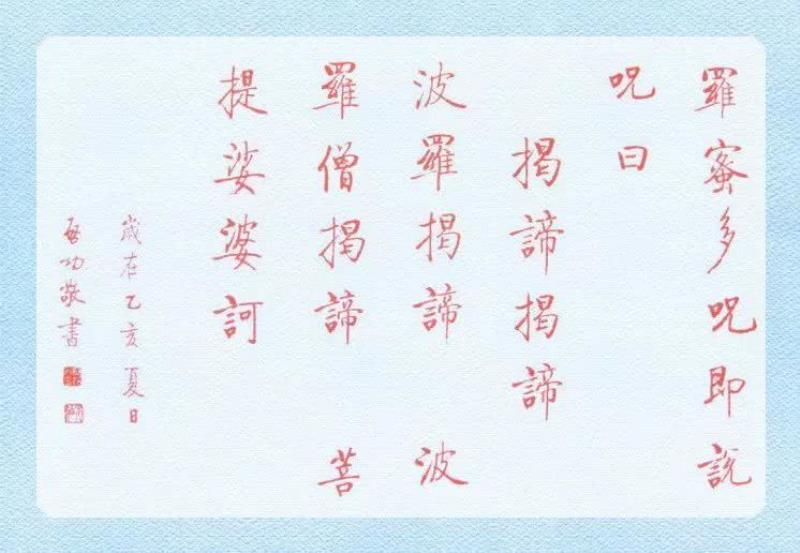 羅蜜多呪即説
呪曰
揭諦揭諦
波羅揭諦 波
羅僧揭諦 菩
提娑婆訶
歲在乙亥夏日
啓功敬書